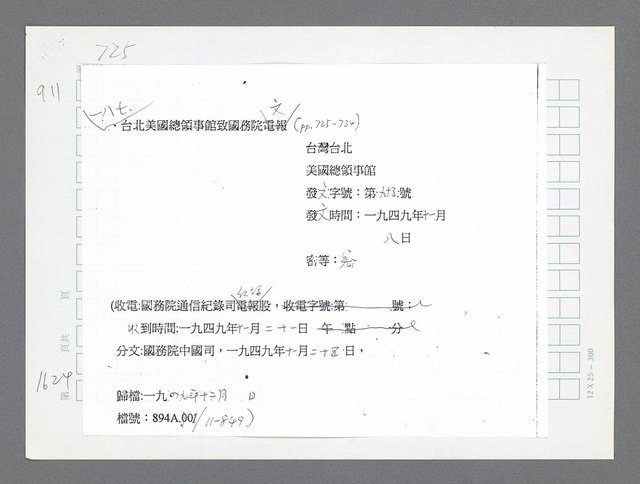 725
911
一八七
文
、台北美國總領事館致國務院電報 (pp.725-734)
台灣台北
美國總領事館
發文字號：第 號
發文時間：一九四九年十一月
八日
密等：密
(收電:國務院通信紀錄司電報股，收電字號:第 號：
收到時間:一九四九年十一月二十一日 午 點 分
分文:國務院中國司，一九四九年十一月二十五日，
頁
頁共
第
1624
歸檔:一九四九年十二月 日
檔號：894A.00/11-849)
12 X 25 = 300